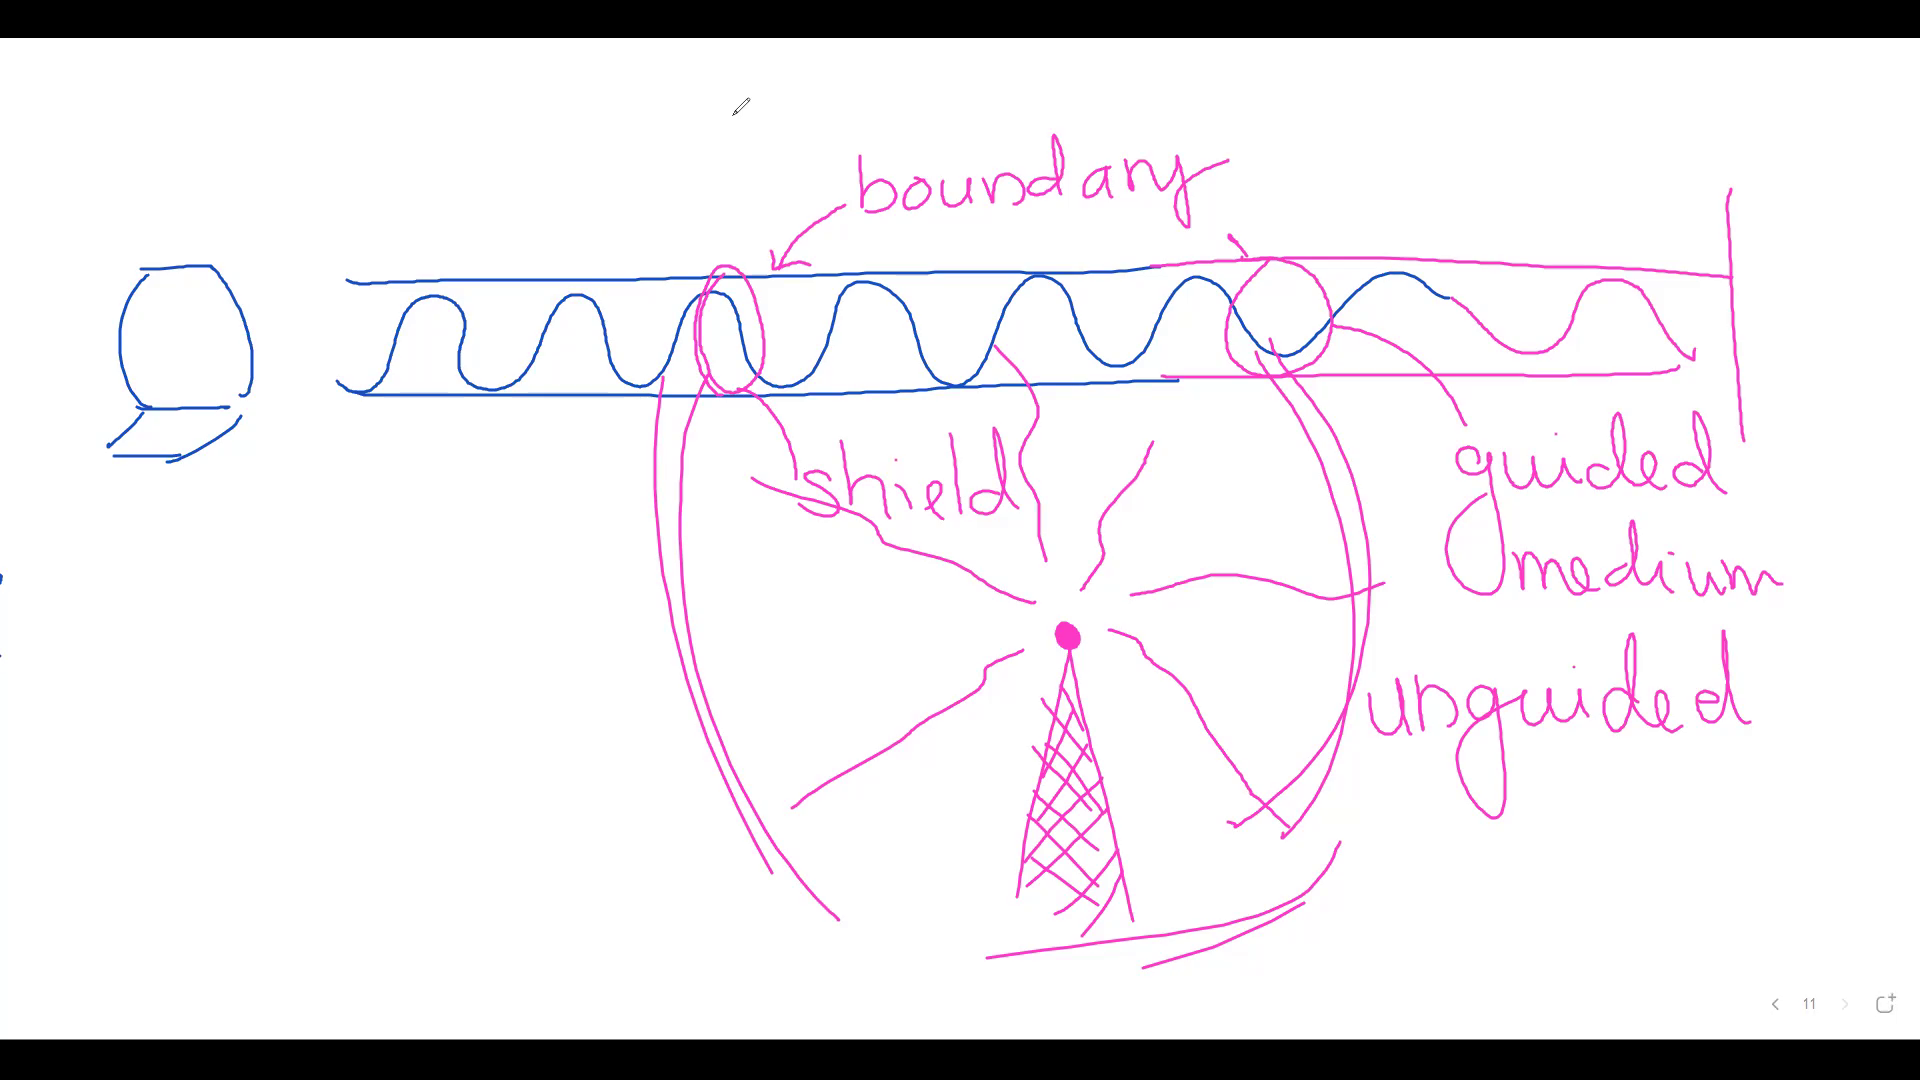 boundary
shield
guided
medium
unguided
11